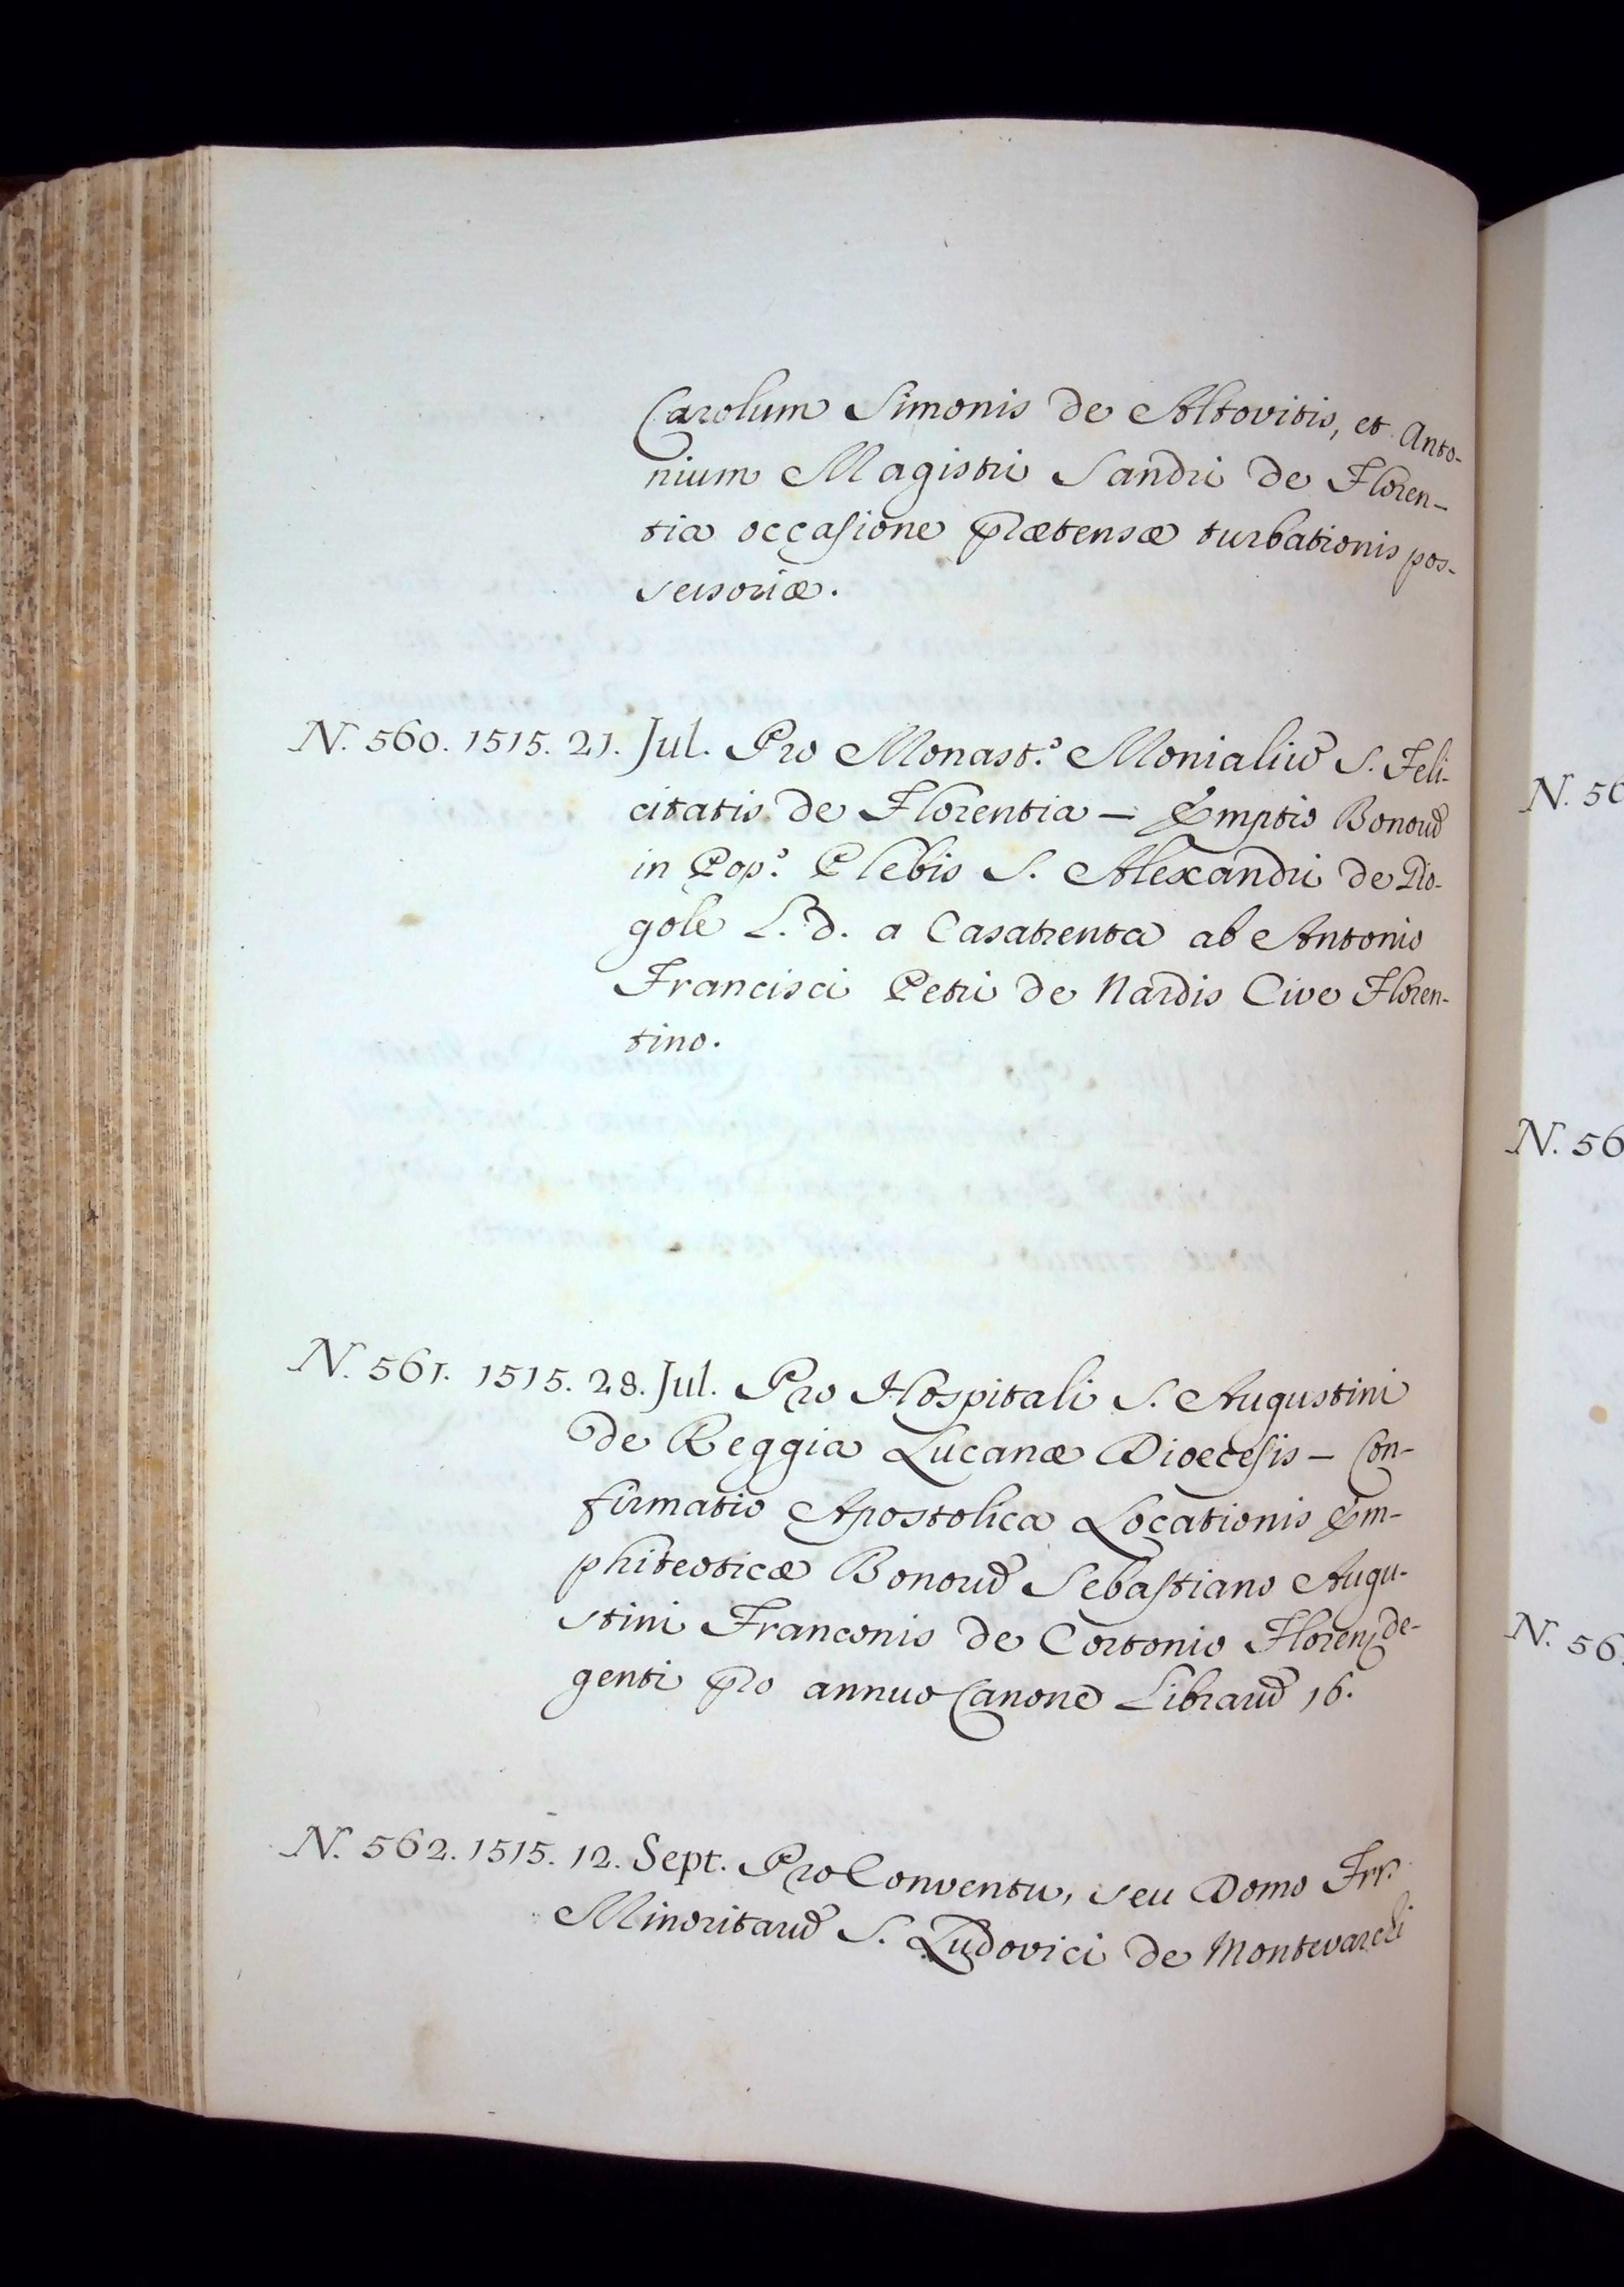 Carolum Simonis de Altovitis, et Anto-
nium Magistri Sandri de Floren-
tia occasione prætensæ turbationis pos-
sessoriæ.
N. 560. 1515. 21. Jul. Pro Monast.º Monialiũ S. Feli-
citatis de Florentia — Emptio Bonorũ
in Pop.º Plebis S. Alexandri de Gio-
gole L. d. a Casatrenta ab Antonio
Francisci Petri de Nardis Cive Floren-
tino.
N. 561. 1515. 28. Jul. Pro Hospitali S. Augustini
de Reggia Lucanæ Dioecesis — Con-
firmatio Apostolica Locationis Em-
phiteoticæ Bonorũ Sebastiano Augu-
stini Franconis de Cortonio Floren; de-
genti pro annuo Canone Librarũ 16.
N. 562. 1515. 12. Sept. Pro Conventu, seu Domo Frr.
Minoritarũ S. Ludovici de Montevarchi
N. 56
N. 56
N. 56